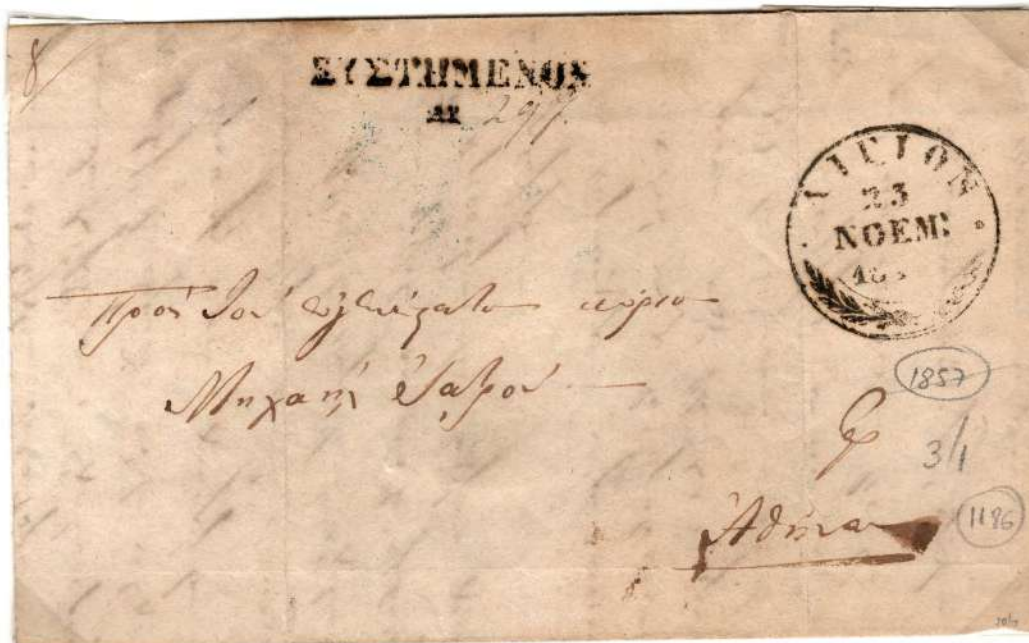 8
ΣΥΣΤΗΜΕΝΟΝ
ΑΡ 297.
ΑΙΓΙΟΝ
23
ΝΟΕΜ:
18
Πρὸς τὸν κύριον
Μηχαὴλ Ἰατροῦ
1857
3/1
Ἀθήνας
1186